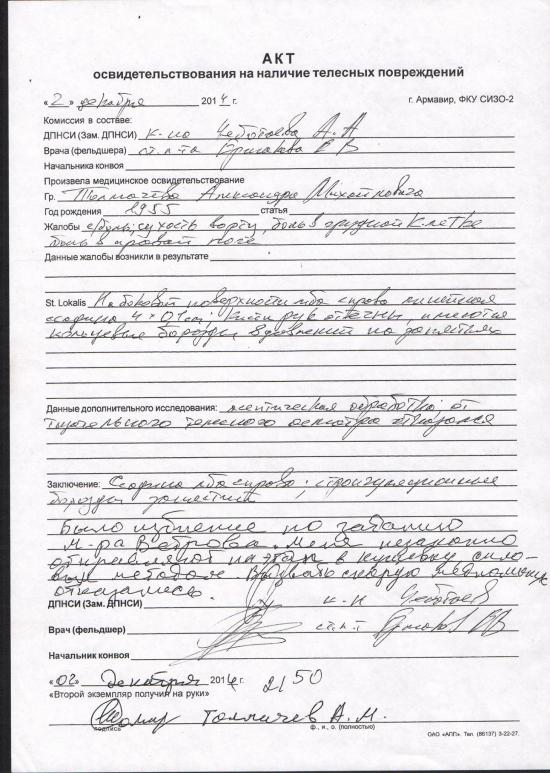 АКТ
освидетельствования на наличие телесных повреждений
«2» декабря 2014 г. г. Армавир, ФКУ СИЗО-2
Комиссия в составе:
ДПНСИ (Зам. ДПНСИ) к-на Чеботаева А. А
Врача (фельдшера) ст. л-та Ермакова В В
Начальника конвоя
Произвела медицинское освидетельствование
Гр. Толмачева Александра Михайловича
Год рождения 1955 статья
Жалобы сухость во рту, боль в грудной клетке
боль в правой ноге
Данные жалобы возникли в результате
St. Lokalis На боковой поверхности лба справа линейная
ссадина 4 × 0,1 см; Кисти рук отечны, имеются
кольцевые борозды вдавлений на запястьях
Данные дополнительного исследования: обработка; от
тщательного телесного осмотра отказался
Заключение: Ссадина лба справа; странгуляционные
борозды запястий
Было избиение по заданию
М-ра Ветрова. Меня незаконно
отправляют на этап в Кущевку сило-
вым методом. Вызвать скорую медпомощь
отказались.
ДПНСИ (Зам. ДПНСИ) к-н Чеботаев
Врач (фельдшер) ст. л-т Ермаков ВВ
Начальник конвоя
«02» Декабря 2014 г. 2150
«Второй экземпляр получил на руки»
Толмачев А. М.
подпись ф., и., о. (полностью)
ОАО «АПП». Тел. (86137) 3-22-27.